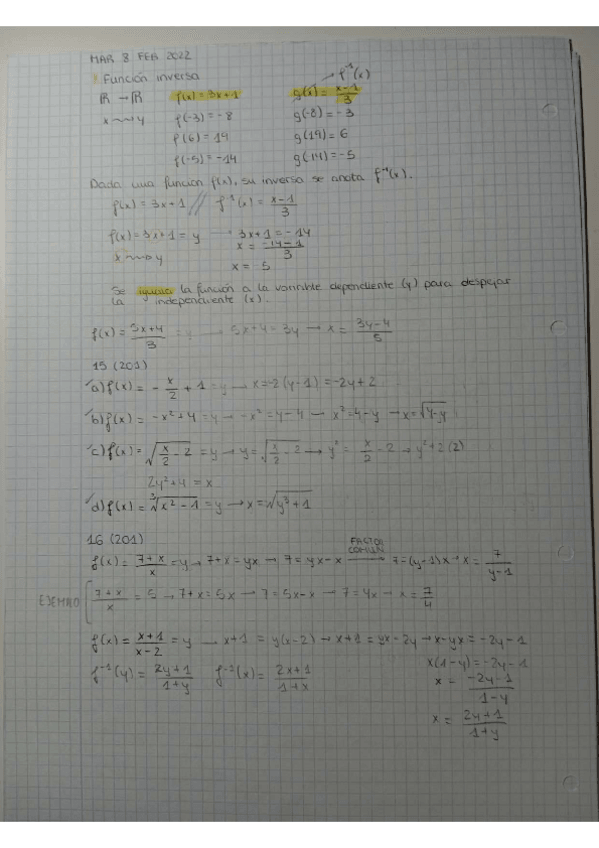 MAR 8 FEB 2022
Función inversa
f⁻¹(x)
ℝ → ℝ f(x) = 3x+1 g(x) = (x-1)/3
x ⇝ y f(-3) = -8 g(-8) = -3
f(6) = 19 g(19) = 6
f(-5) = -14 g(14) = -5
Dada una función f(x), su inversa se anota f⁻¹(x).
f(x) = 3x+1 // f⁻¹(x) = (x-1)/3
f(x) = 3x+1 = y → 3x+1 = -14
x ⇝ y x = (-14-1)/3
x = -5
Se iguala la función a la variable dependiente (y) para despejar
la independiente (x).
f(x) = (5x+4)/3 = y → 5x+4 = 3y → x = (3y-4)/5
15 (201)
a) f(x) = -x/2 + 1 = y → x = -2(y-1) = -2y+2
b) f(x) = -x²+4 = y → -x² = y-4 → x² = 4-y → x = √(4-y)
c) f(x) = √(x/2 - 2) = y → y = √(x/2 - 2) → y² = x/2 - 2 → y²+2(2)
2y²+4 = x
d) f(x) = ∛(x²-1) = y → x = √(y³+1)
16 (201)
f(x) = (7+x)/x = y → 7+x = yx → 7 = yx-x FACTOR COMUN → 7 = (y-1)x → x = 7/(y-1)
EJEMPLO [ (7+x)/x = 5 → 7+x = 5x → 7 = 5x-x → 7 = 4x → x = 7/4
f(x) = (x+1)/(x-2) = y → x+1 = y(x-2) → x+1 = yx-2y → x-yx = -2y-1
f⁻¹(y) = (2y+1)/(1+y) f⁻¹(x) = (2x+1)/(1+x) x(1-y) = -2y-1
x = (-2y-1)/(1-y)
x = (2y+1)/(1+y)